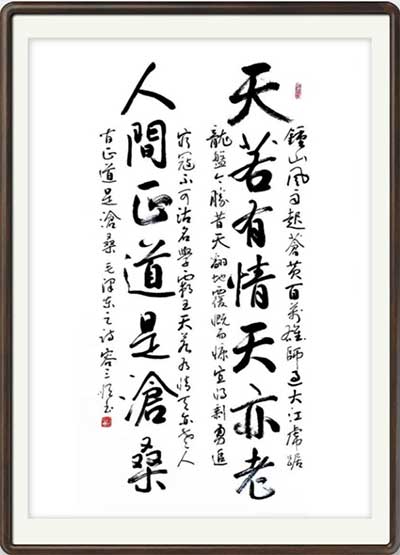 天若有情天亦老
人間正道是滄桑
鐘山風雨起蒼黃百萬雄師過大江虎踞
龍盤今勝昔天翻地覆慨而慷宜將剩勇追
窮寇不可沽名學霸王天若有情天亦老人
間正道是滄桑 毛澤東之詩 容三書